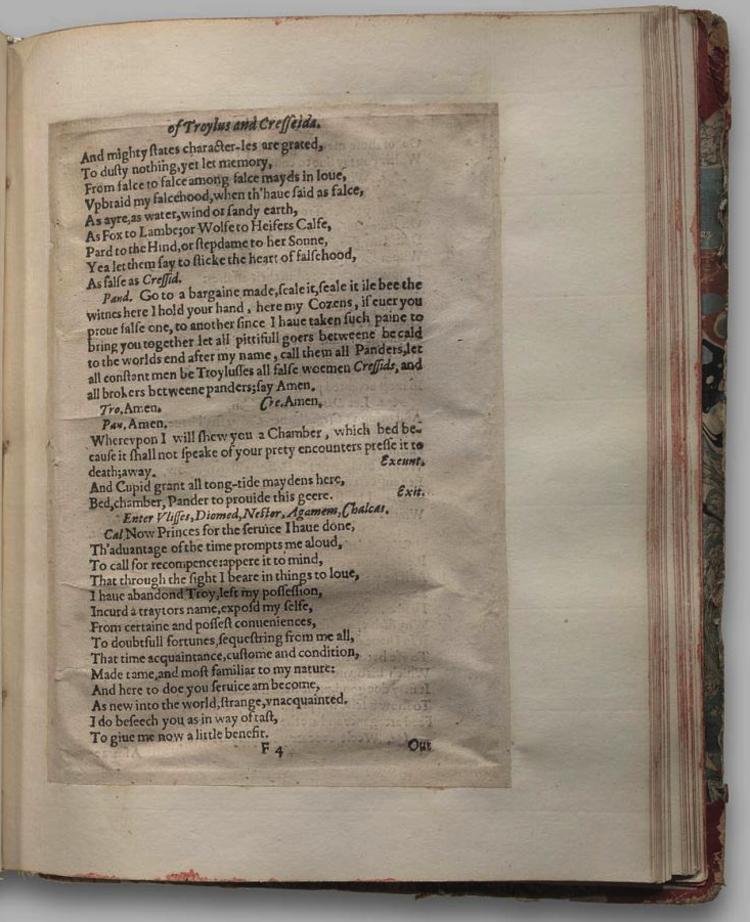 of Troylus and Cresseida.
And mighty states character-les are grated,
To dusty nothing, yet let memory,
From falce to falce among falce mayds in loue,
Vpbraid my falcehood, when th'haue said as falce,
As ayre, as water, wind or sandy earth,
As Fox to Lambe; or Wolfe to Heifers Calfe,
Pard to the Hind, or stepdame to her Sonne,
Yea let them say to sticke the heart of falsehood,
As false as Cressid.
Pand. Go to a bargaine made, seale it, seale it ile bee the
witnes here I hold your hand, here my Cozens, if euer you
proue false one, to another since I haue taken such paine to
bring you together let all pittifull goers betweene be cald
to the worlds end after my name, call them all Panders, let
all constant men be Troylusses all false woemen Cressids, and
all brokers betweene panders; say Amen.
Tro. Amen. Cre. Amen.
Pan. Amen.
Wherevpon I will shew you a Chamber, which bed be-
cause it shall not speake of your prety encounters presse it to
death; away. Exeunt.
And Cupid grant all tong-tide maydens here,
Bed, chamber, Pander to prouide this geere. Exit.
Enter Vlisses, Diomed, Nestor, Agamem, Chalcas.
Cal Now Princes for the seruice I haue done,
Th'aduantage of the time prompts me aloud,
To call for recompence: appere it to mind,
That through the sight I beare in things to loue,
I haue abandond Troy, left my possession,
Incurd a traytors name, exposd my selfe,
From certaine and possest conueniences,
To doubtfull fortunes, sequestring from me all,
That time acquaintance, custome and condition,
Made tame, and most familiar to my nature:
And here to doe you seruice am become,
As new into the world, strange, vnacquainted.
I do beseech you as in way of tast,
To giue me now a little benefit.
F 4 Out